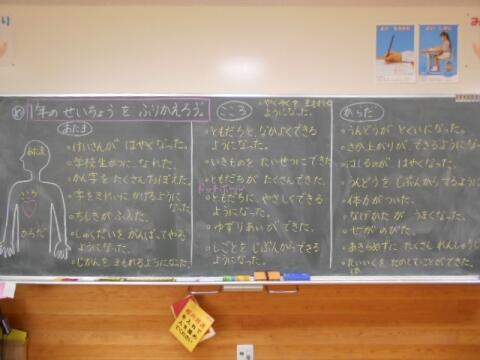 め
1年の せいちょう を ふりかえろう。
あたま
・けいさんが はやくなった。
・学校生かつに なれた。
・かん字を たくさんおぼえた。
・字をきれいに かけるように
なった。
・ちしきが ふえた。
・しゅくだいを がんばってやる
ようになった。
・じかんを まもれるようになった
こころ
からだ
こころ
・やくそくを まもれる
ようになった。
・ともだちと、なかよくできる
ようになった。
・いきものを たいせつにできた。
・ともだちが たくさんできた。
ドッドボール
・ともだちに、やさしくできる
ようになった。
・ゆずりあいが できた。
・しごとを じぶんからできる
ようになった。
からだ
・うんどうが とくいになった。
・さか上がりが、できるようになった
・はしるのが はやくなった。
・うんどうを じぶんから するように
・体力がついた。
・なげかたが うまくなった。
・せがのびた。
・あきらめずに たくさん れんしゅう
・たいいくを たのしむことができた。